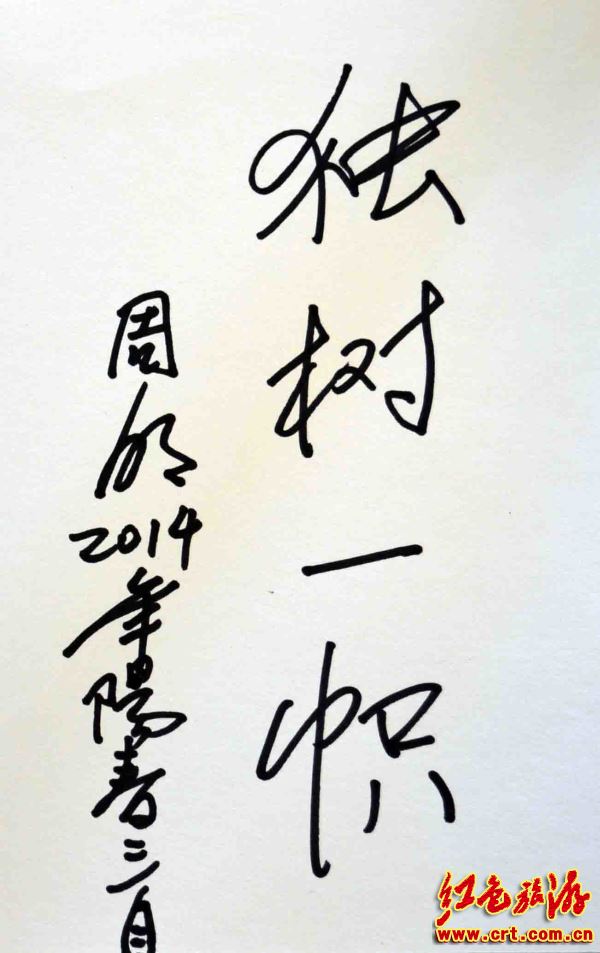 独树一帜
周明
2014年陽春三月
红色旅游
www.crt.com.cn